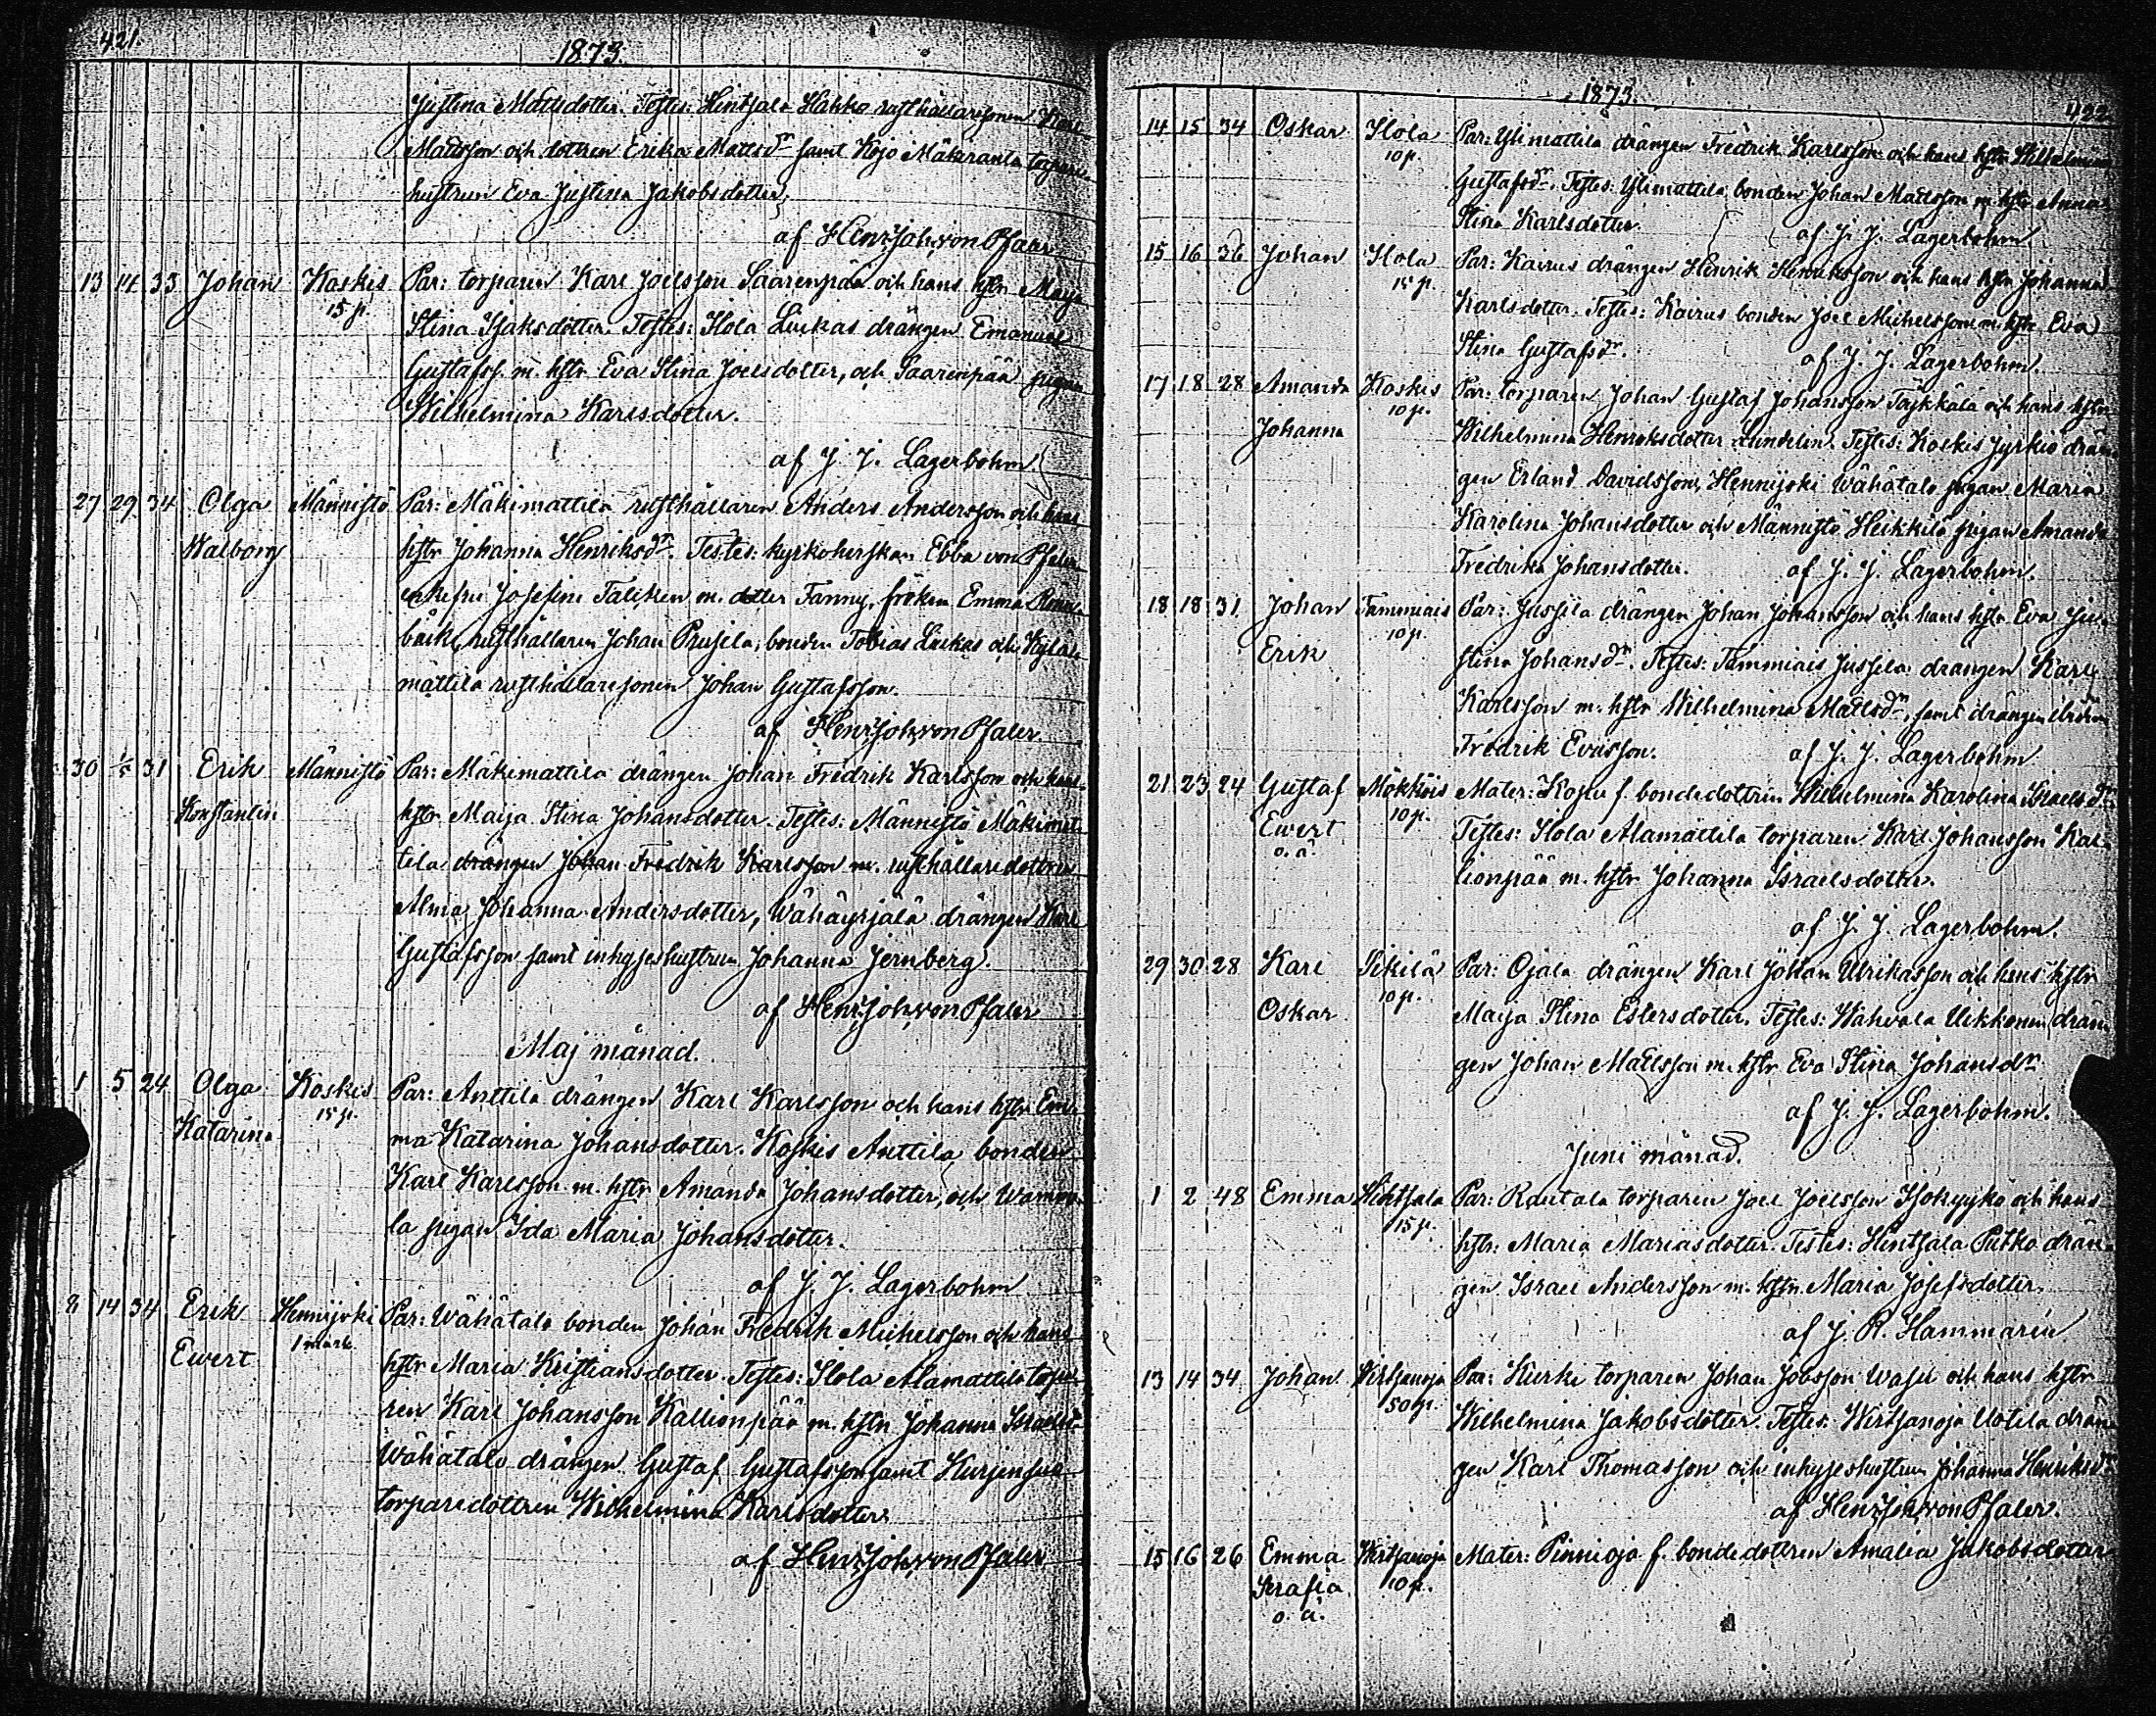 421.
1873.
Justina Mattsdotter. Testes: Hintsala Hakko rusthållaresonen Karl
Mattsson och dottren Erika Mattsdr samt Kojo Mäkiranta torpare
hustrun Eva Justina Jakobsdotter,
af Henr. Joh. von Pfaler
13 14 33 Johan Koskis Par: torparen Karl Joelsson Saarenpää och hans hstr Maja
15 p. Stina Isaksdotter. Testes: Ilola Luckas drängen Emanuel
Gustafss. m. hstr Eva Stina Joelsdotter, och Saarenpää pigan
Wilhelmina Karlsdotter.
af J. J. Lagerbohm
27 29 34 Olga Männistö Par: Mäkimattila rusthållaren Anders Andersson och hans
Walborg hstr Johanna Henriksdr. Testes: kyrkoherskan Ebba von Pfaler
enkefru Josefine Taleken m. dotter Fanny, fröken Emma
bäck, rusthållaren Johan Prusila, bonden Tobias Luckas och Kylä
mattila rusthållaresonen Johan Gustafsson.
af Henr. Joh. von Pfaler.
30 1/5 31 Erik Männistö Par: Mäkimattila drängen Johan Fredrik Karlsson och hans
Konstantin hstr Maija Stina Johansdotter. Testes: Männistö Mäkimat
tila drängen Johan Fredrik Karlsson m. rusthållaredottren
Alma Johanna Andersdotter, Wähäyrjälä drängen Karl
Gustafsson samt inhyseshustrun Johanna Jernberg.
af Henr. Joh. von Pfaler
Maj månad.
1 5 24 Olga Koskis Par: Anttila drängen Karl Karlsson och hans hstr Em
Katarina 15 p. ma Katarina Johansdotter. Koskis Anttila bonden
Karl Karlsson m. hstr Amanda Johansdotter, och Wamma
la pigan Ida Maria Johansdotter.
af J. J. Lagerbohm
8 14 34 Erik Hennijoki Par: Wähätalo bonden Johan Fredrik Michelsson och hans
Ewert 1 mark hstr Maria Kristiansdotter. Testes: Ilola Alamattila torpa
ren Karl Johansson Kallionpää m. hstr Johanna Israelsd
Wähätalo drängen Gustaf Gustafsson samt Kurjensuo
torparedottren Wilhelmina Karlsdotter.
af Henr. Joh. von Pfaler
1873.
422
14 15 34 Oskar Ilola Par: Ylimattila drängen Fredrik Karlsson och hans hstr Wilhelmina
10 p. Gustafsdr. Testes: Ylimattila bonden Johan Mattsson m. hstr Anna
Stina Karlsdotter. af J. J. Lagerbohm
15 16 36 Johan Ilola Par: Kairus drängen Henrik Henriksson och hans hstr Johanna
15 p. Karlsdotter. Testes: Kairus bonden Joel Michelsson m. hstr Eva
Stina Gustafsdr. af J. J. Lagerbohm.
17 18 28 Amanda Koskis Par: torparen Johan Gustaf Johansson Täykkälä och hans hstr
Johanna 10 p. Wilhelmina Henriksdotter Lindelin. Testes: Koskis Jyrkiö drän
gen Erland Davidsson, Hennijoki Wähätalo pigan Maria
Karolina Johansdotter och Männistö Heikkilä pigan Amanda
Fredrika Johansdotter. af J. J. Lagerbohm.
18 18 31 Johan Tammiais Par: Jussila drängen Johan Johansson och hans hstr Eva Ju
Erik 10 p. stina Johansdr. Testes: Tammiais Jussila drängen Karl
Karlsson m. hstr Wilhelmina Mattsdr, samt drängen ibidem
Fredrik Evasson. af J. J. Lagerbohm
21 23 24 Gustaf Mökköis Mater: f. bondedottren Wilhelmina Karolina Israelsdr
Ewert 10 p. Testes: Ilola Alamattila torparen Karl Johansson Kal
o. ä. lionpää m. hstr Johanna Israelsdotter.
af J. J. Lagerbohm.
29 30 28 Karl Tikilä Par: Ojala drängen Karl Johan Ulrikasson och hans hstr
Oskar 10 p. Maija Stina Estersdotter. Testes: Wahvala Uikkonen drän
gen Johan Mattsson m. hstr Eva Stina Johansdr
af J. J. Lagerbohm.
Juni månad.
1 2 48 Emma Hintsala Par: Rautala torparen Joel Joelsson Isokyykö och hans
15 p. hstr: Maria Mariasdotter. Testes: Hintsala Putko drän
gen Israel Andersson m. hstr. Maria Josefsdotter.
af J. R. Hammarén
13 14 34 Johan Wirtsanoja Par: Kurki torparen Johan Jobsson Wasu och hans hstr
50 p. Wilhelmina Jakobsdotter. Testes: Wirtsanoja Uotila drän
gen Karl Thomasson och inhyseshustrun Johanna Henriksdr
af Henr. Joh. von Pfaler.
15 16 26 Emma Wirtsanoja Mater: Pinnioja f. bondedottren Amalia Jakobsdotter
Serafia 10 p.
o. ä.